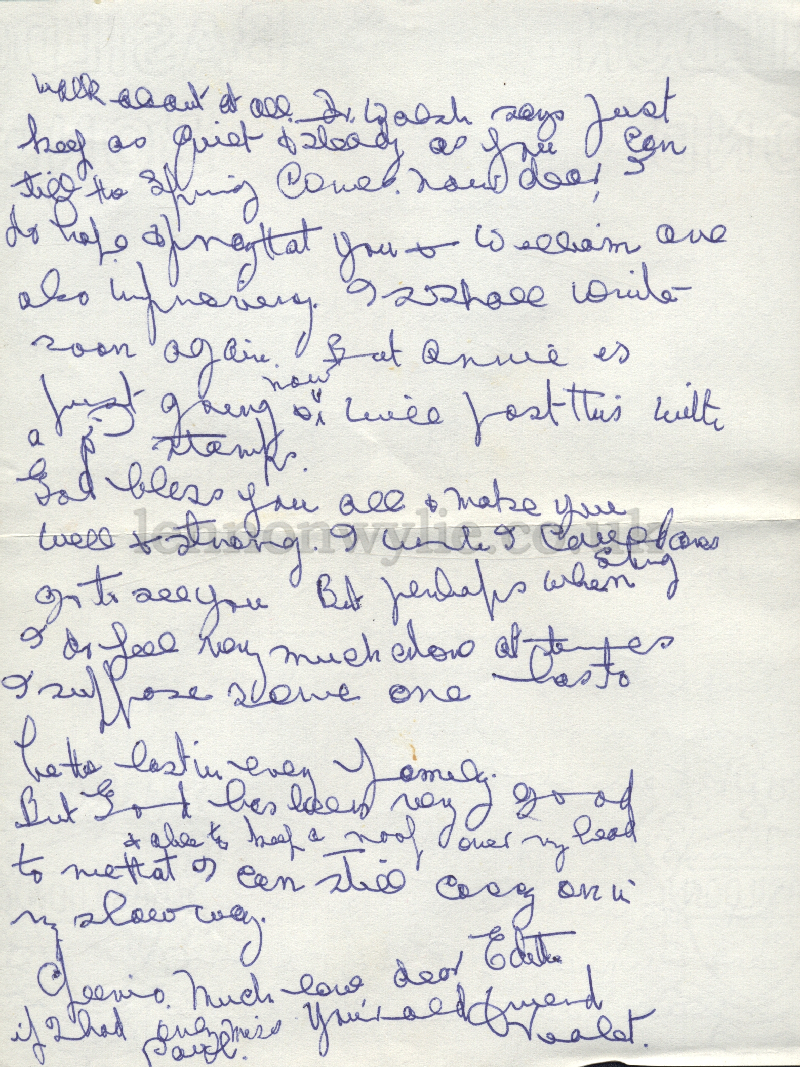 walk about at all. Dr. Walsh says just
keep as quiet & steady as you can
till to Spring Comes. now dear, I
do hope & pray that you & William are
also improving. I shall write
soon again. But Annie is
just going now & will post this with
a stamps.
God bless you all & make you
well & strong. I wish I could
go to see you But perhaps when Spring comes
I do feel very much alone at times
I suppose some one has to
be the last in every family.
But God has been very good
& able to keep a roof over my head
to me that I can still carry on in
my slow way.
Cheerio. Much love dear Edith
if I had only miss your old friend
Violet.
lennonwylie.co.uk